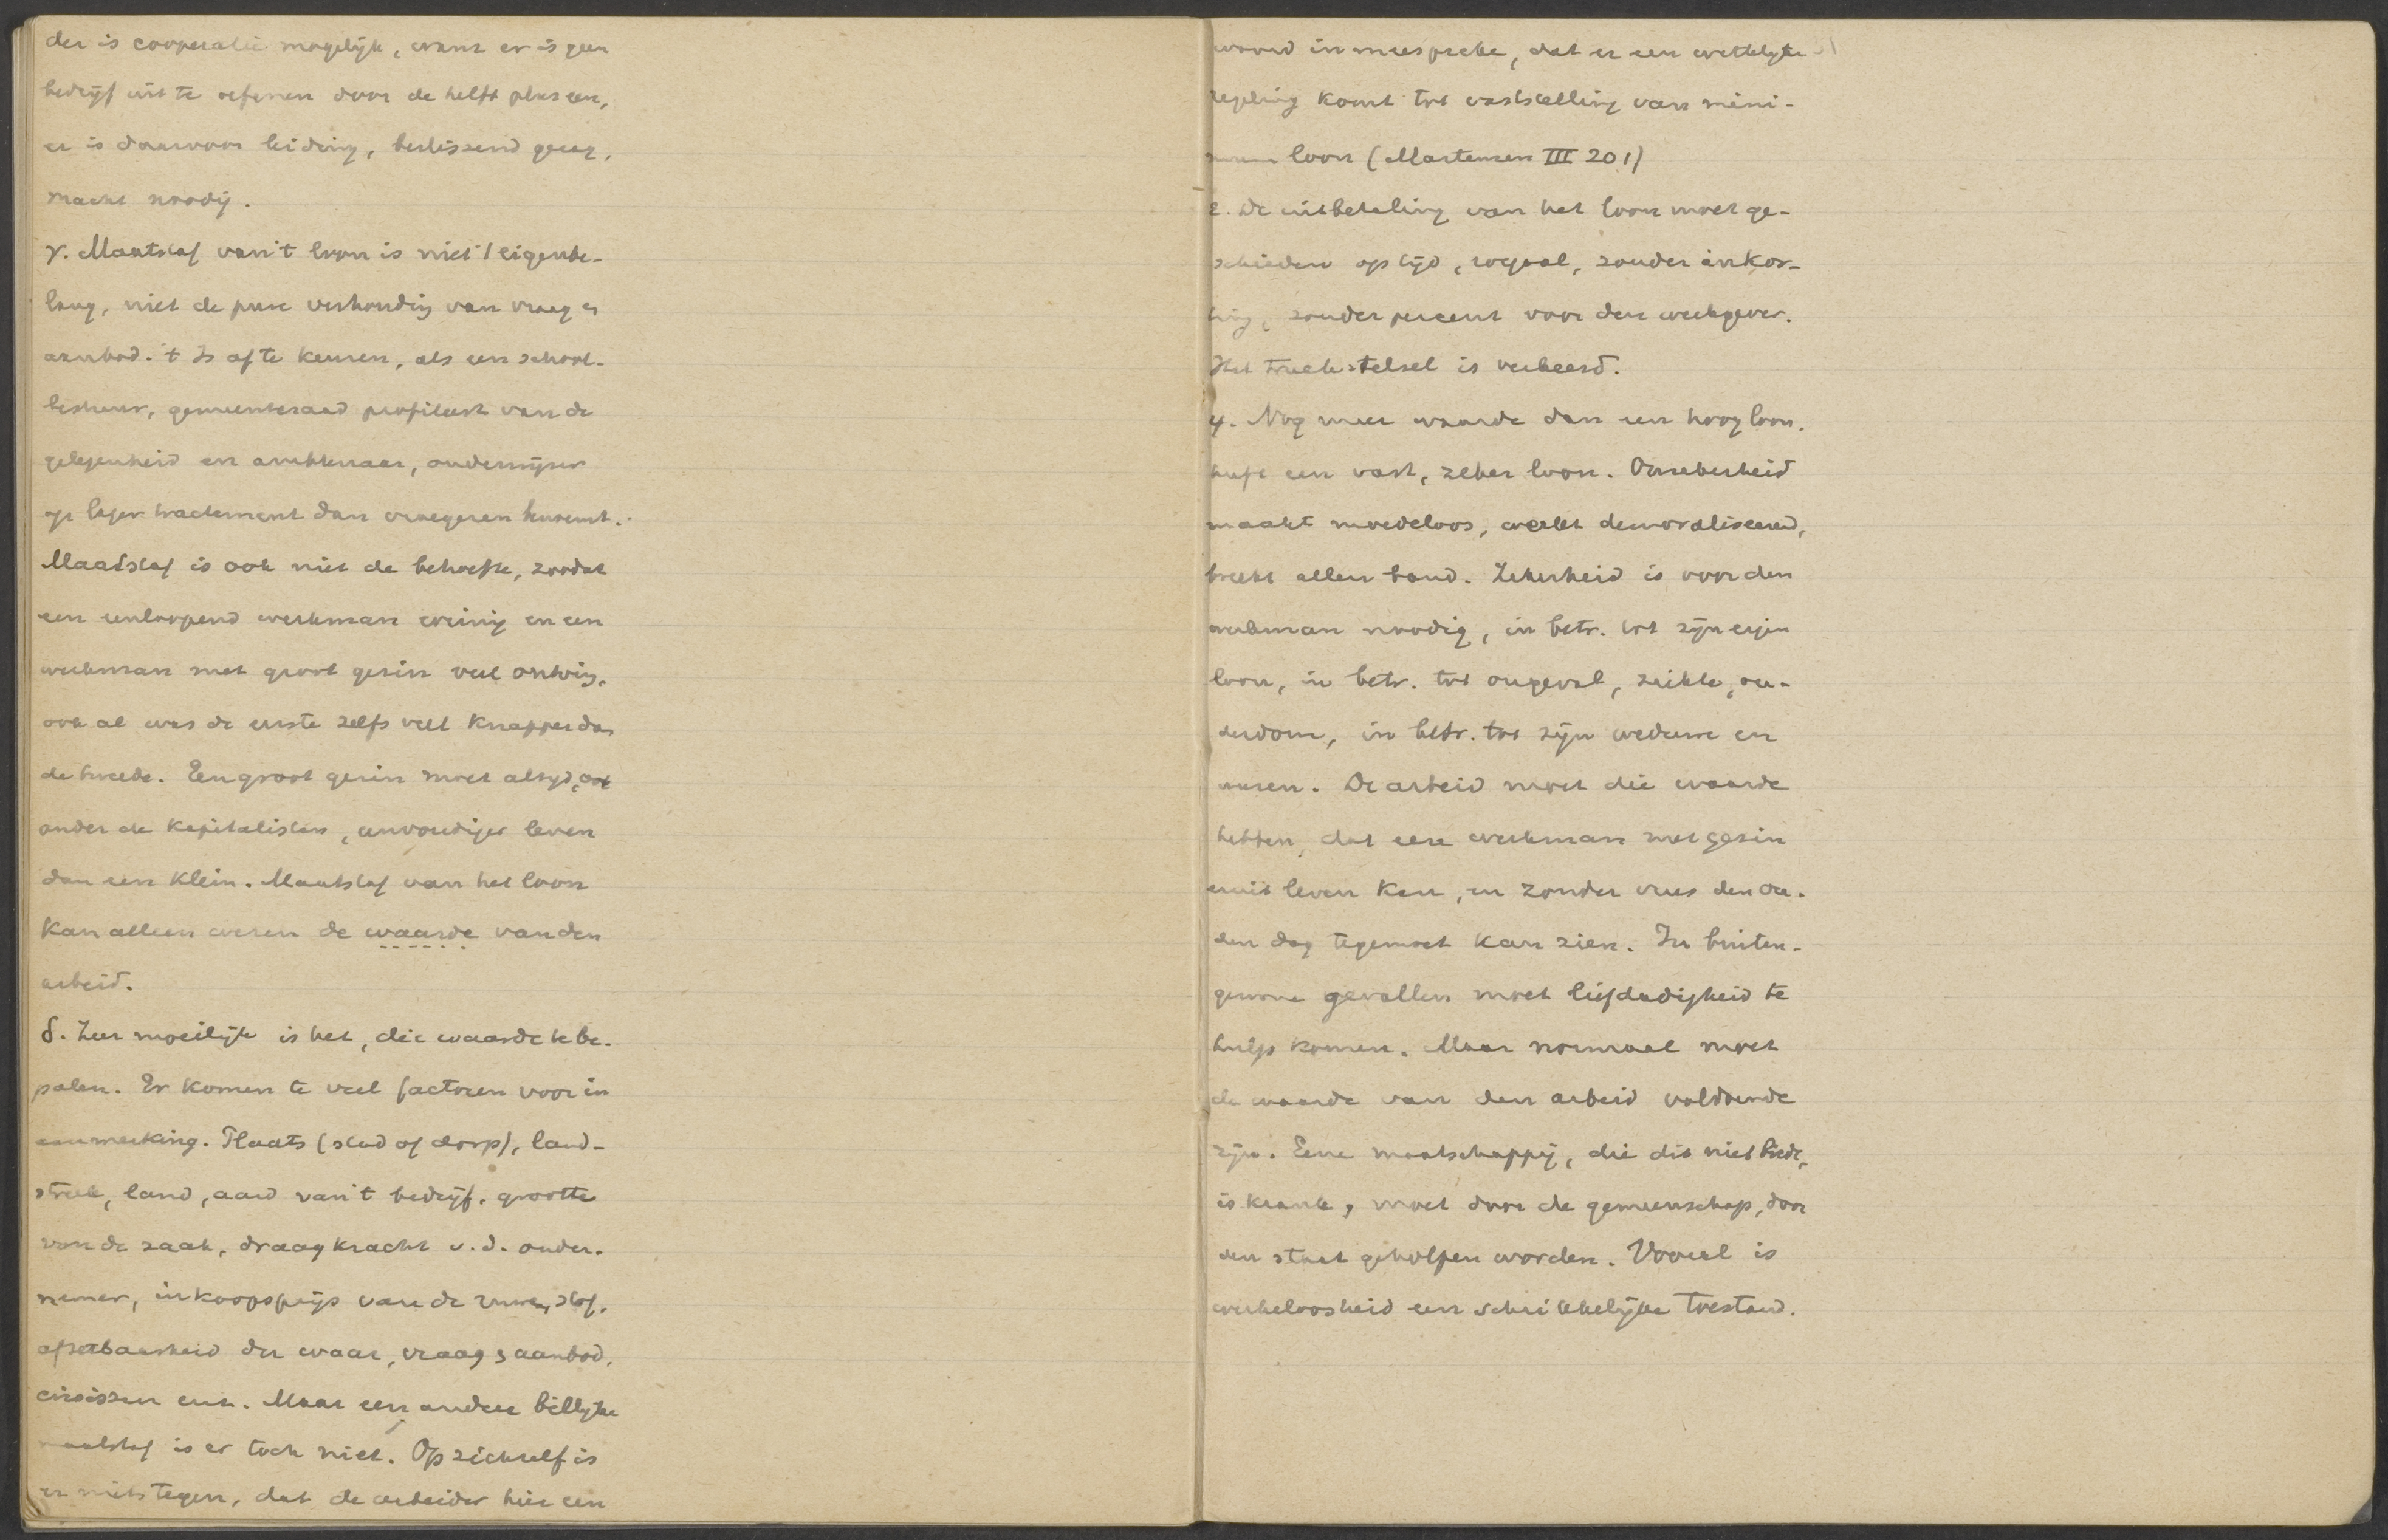 der is cooperatie mogelijk, want er is geen
bedrijf uit te oefenen door de helft plus een,
er is daarvoor leiding, beslissend gezag,
macht noodig.
γ. Maatstaf van 't loon is niet 't eigenbe-
lang, niet de pure verhouding van vraag en
aanbod. 't Is af te keuren, als een school-
bestuur, gemeenteraad profiteert van de
gelegenheid en ambtenaar, onderwijzer
op lager tractement dan vroegeren benoemt.
Maatstaf is ook niet de behoefte, zoodat
een eenloopend werkman weinig en een
werkman met groot gezin veel ontving,
ook al was de eerste zelfs veel knapper dan
de tweede. Een groot gezin moet altijd, ook
onder de kapitalisten, eenvoudiger leven
dan een klein. Maatstaf van het loon
kan alleen wezen de waarde van den
arbeid.
δ. Zeer moeilijk is het, die waarde te be-
palen. Er komen te veel factoren voor in
aanmerking. Plaats (stad of dorp), land-
streek, land, aard van 't bedrijf, grootte
van de zaak, draagkracht v.d. onder-
nemer, inkoopsprijs van de ruwe stof,
afzetbaarheid der waar, vraag & aanbod,
crisissen enz. Maar een andere billijke
maatstaf is er toch niet. Op zichzelf is
er niets tegen, dat de arbeider hier een
woord in meespreke, dat er een wettelijke
regeling komt tot vaststelling van mini-
mum loon (Martensen III 201)
ε. De uitbetaling van het loon moet ge-
schieden op tijd, royaal, zonder inkor-
ting, zonder percent voor den werkgever.
Het truckstelsel is verkeerd.
4. Nog meer waarde dan een hoog loon,
heeft een vast, zeker loon. Onzekerheid
maakt moedeloos, werkt demoraliseerend,
breekt allen band. Zekerheid is voor den
werkman noodig, in betr. tot zijn eigen
loon, in betr. tot ongeval, ziekte, ou-
derdom, in betr. tot zijn weduwe en
wezen. De arbeid moet die waarde
hebben, dat eene werkman met gezin
eruit leven kan, en zonder vrees den ou-
den dag tegemoet kan zien. In buiten-
gewone gevallen moet liefdadigheid te
hulp komen. Maar normaal moet
de waarde van den arbeid voldoende
zijn. Eene maatschappij, die dit niet biedt,
is krank, moet door de gemeenschap, door
den staat geholpen worden. Vooral is
werkeloosheid een schrikkelijke toestand.